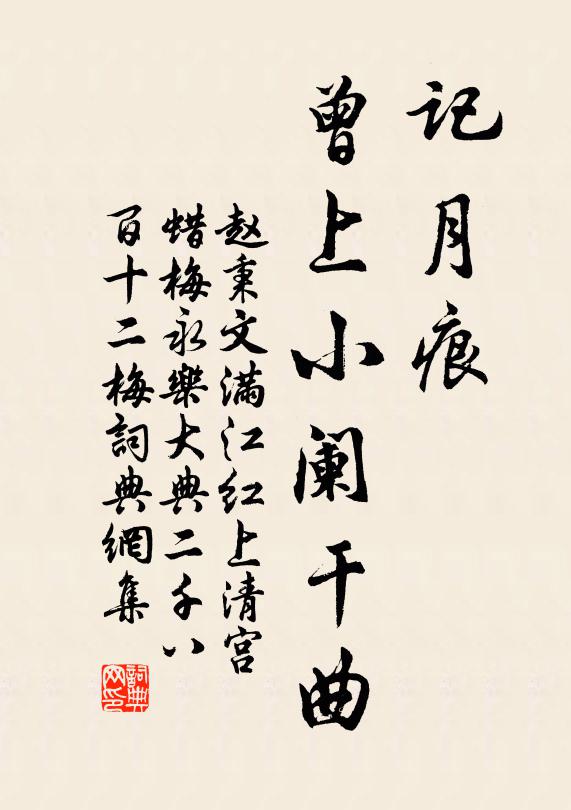 记月痕
曾上小阑干曲
赵秉文满江红上清宫
蜡梅永樂大典二千八
百十二梅詞典網集
詞典
网印